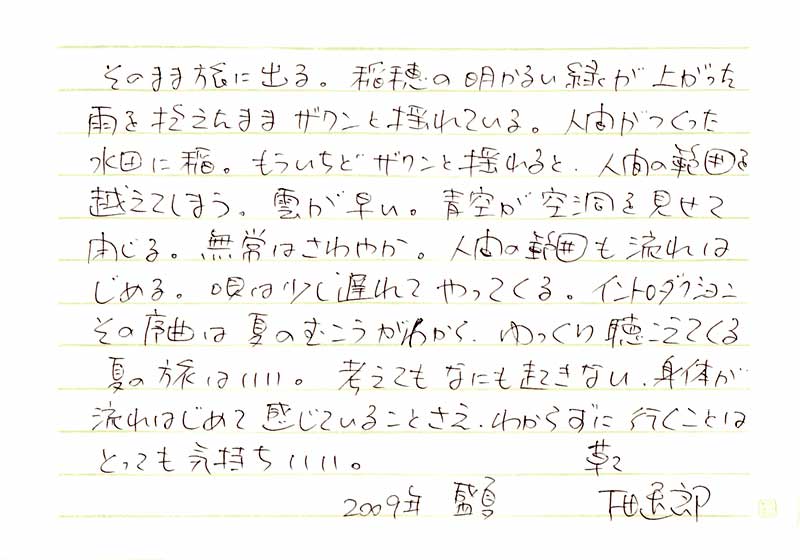 そのまま旅に出る。稲穂の明かるい緑が上がった
雨を抱えたままザワンと揺れている。人間がつくった
水田に稲。もういちどザワンと揺れると、人間の範囲を
越えてしまう。雲が早い。青空が空洞を見せて
閉じる。無常はさわやか。人間の範囲も流れは
じめる。唄は少し遅れてやってくる。イントロダクション
その序曲は夏のむこうがわから、ゆっくり聴こえてくる
夏の旅はいい。考えてもなにも起きない、身体が
流れはじめて感じていることさえ、わからずに行くことは
とっても気持ちいい。
2009年 夏